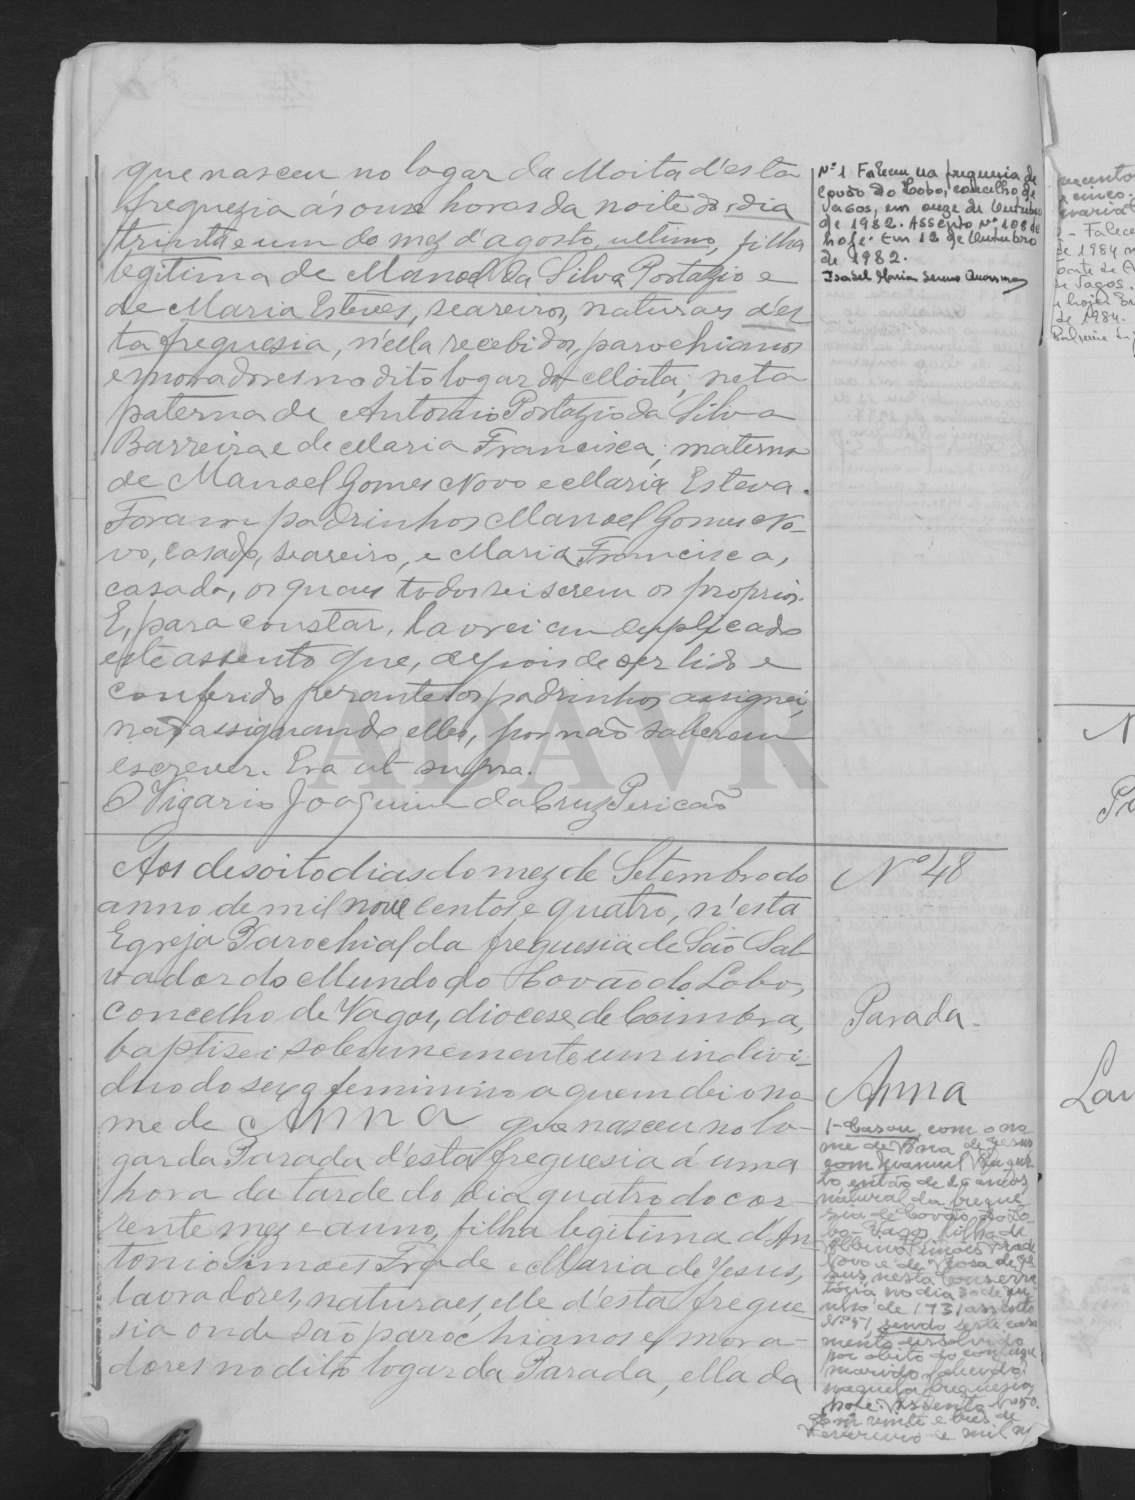 que nasceu no logar da Moita d'esta
freguezia ás onze horas da noite do dia
trinta e um do mez d'agosto, ultimo, filha
legitima de Manoel da Silva Portazio e
de Maria Esteves, seareiros, naturaes d'es
ta freguesia, n'ella recebidos, parochianos
e moradores no dito logar da Moita; neta
paterna de Antonio Portazio da Silva
Barreira e de Maria Francisca; materna
de Manoel Gomes Novo e Maria Esteva.
Foram padrinhos Manoel Gomes No-
vo, casado, seareiro, e Maria Francisca,
casada, os quaes todos sei serem os proprios.
E, para constar, lavrei em duplicado
este assento que, depois de ser lido e
conferido perante os padrinhos assignei,
não assignando elles, por não saberem
escrever. Era ut supra.
O Vigario Joaquim da Cruz Pericão
Nº 1 Faleceu na freguesia de
Covão do Lobo, concelho de
Vagos, em onze de Outubro
de 1982. Assento nº 108 de
hoje. Em 12 de Outubro
de 1982.
Isabel Maria
ADAVR
Aos desoito dias do mez de Setembro do
anno de mil nove centos e quatro, n'esta
Egreja Parochial da freguesia de São Sal-
vador do Mundo do Covão do Lobo,
concelho de Vagos, diocese de Coimbra,
baptisei solemnemente um indivi-
duo do sexo feminino a quem dei o no-
me de Anna que nasceu no lo-
gar da Parada d'esta freguesia á uma
hora da tarde do dia quatro do cor-
rente mez e anno, filha legitima d'An-
tonio Simões Frade e Maria de Jesus,
lavradores, naturaes, elle d'esta fregue
sia onde são parochianos e mora-
dores no dito logar da Parada, ella da
Nº 48
Parada.
Anna
1- Casou, com o no
me de Ana de Jesus
com Manuel
então de 26 anos
natural da fregue-
sia de Covão do Lo-
bo, Vagos, filho de
Albino Simões Frade
Novo e de Rosa de Je
sus, nesta Conserva
tória no dia de Ju
nho de 1931 assento
Nº 51 sendo este casa
mento dissolvido
por óbito do conjuge
marido falecido
naquela freguesia
hoje. Assento nº 50.
Em vinte e tres de
Fevereiro de mil
- Falece
de 1984
de Vagos.
de 1984.
N
Lau